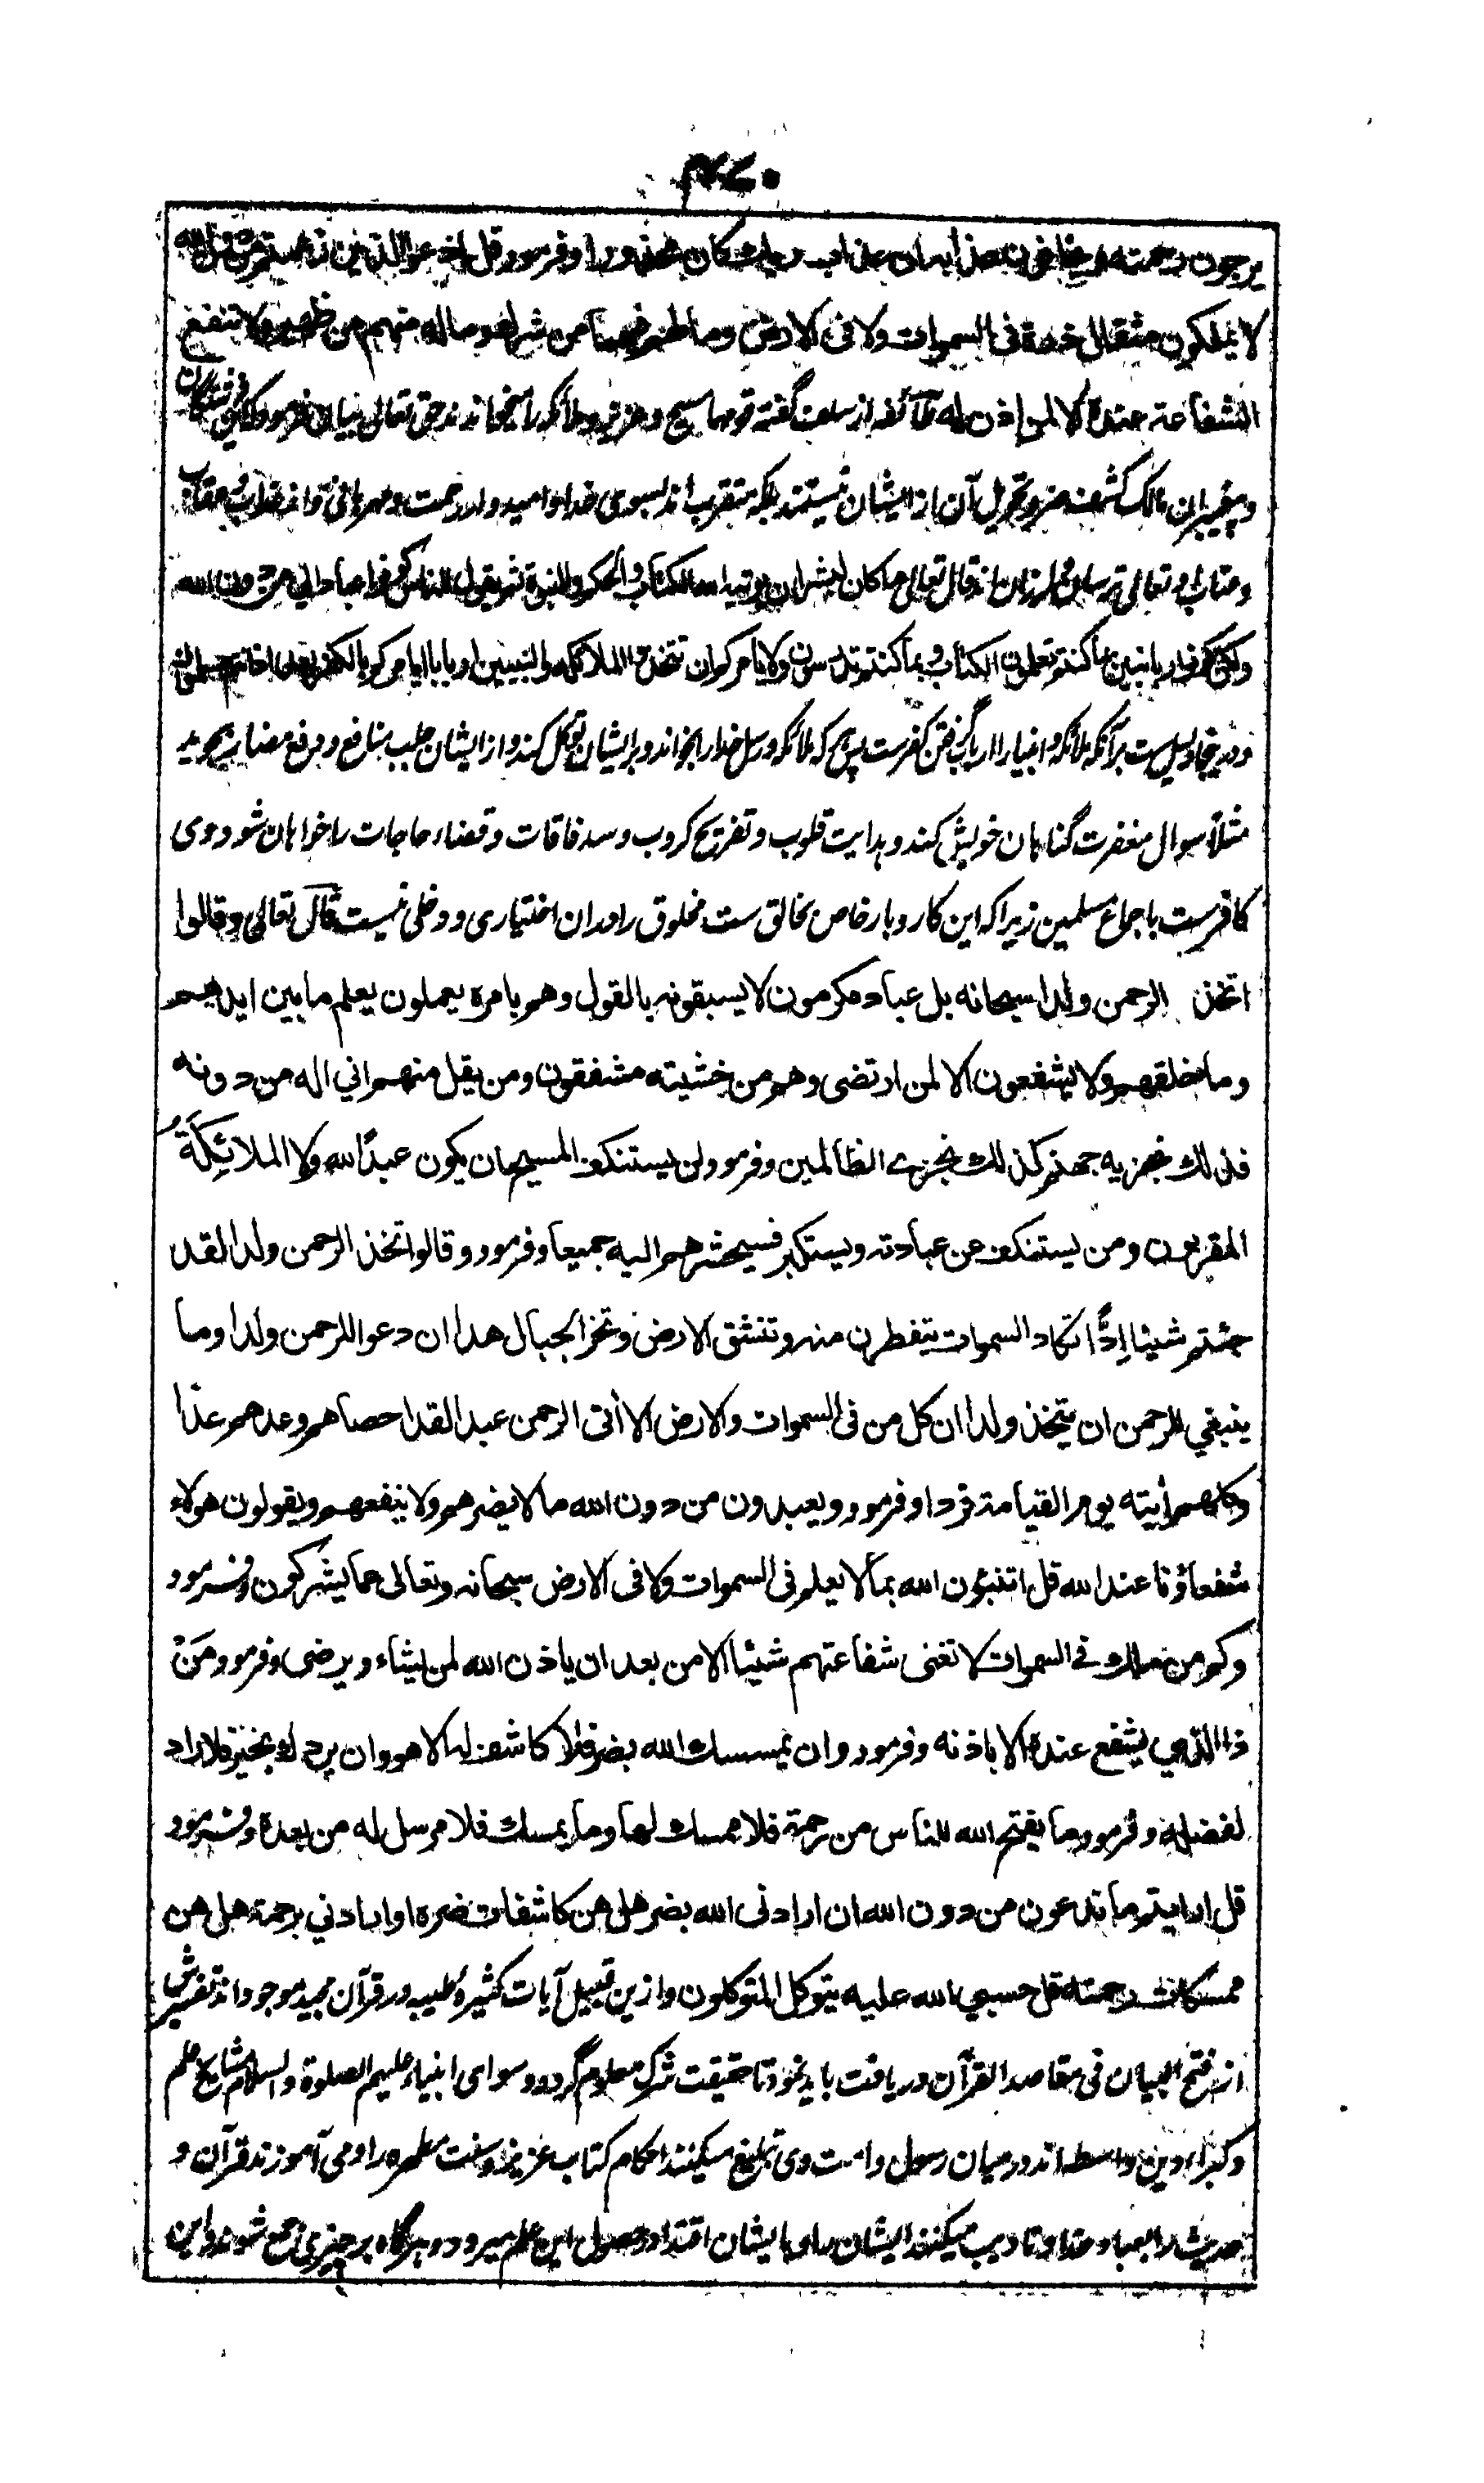 ۴۷۰
يرجون رحمته ويخافون عذابه ان عذاب ربك كان محذورا وفرمود قل ادعوا الذين زعمتم من دون الله
لا يملكون مثقال ذرة فى السموات ولا فى الارض وما لهم فيهما من شرك وما له منهم من ظهير ولا تنفع
الشفاعة عنده الا لمن اذن له طائفه از سلف گفته قومها مسيح وعزير وملائكه را ميخواندند حق تعالى بيان فرمود كه اين فرشتگان
وپيغمبران مالك كشف ضر وتحويل آن از ايشان نيستند بلكه متقرب اند بسوى خدا واميدوار رحمت ومهربانى او
تعالى ترسان ولرزان اند قال تعالى ما كان لبشر ان يؤتيه الله الكتاب والحكم والنبوة ثم يقول للناس كونوا عبادا لي من دون الله
ولكن كونوا ربانيين بما كنتم تعلمون الكتاب وبما كنتم تدرسون ولا يامركم ان تتخذوا الملائكة والنبيين اربابا ايامركم بالكفر بعد اذ انتم مسلمون
ودرينجا دليل ست برآنكه ملائكه وانبيا را ارباب گرفتن كفرست پس هر كه ملائكه ورسل خدا را بخواند وبرايشان توكل كند واز ايشان جلب منافع ودفع مضار بجويد
مثلا سوال مغفرت گناهان خويش كند وهدايت قلوب وتفريج كروب وسد فاقات وقضاء حاجات را خواهان شود وى
كافرست باجماع مسلمين زيرا كه اين كاروبار خاص بخالق ست مخلوق را دران اختيارى ودخلى نيست قال تعالى وقالوا
اتخذ الرحمن ولدا سبحانه بل عباد مكرمون لا يسبقونه بالقول وهم بامره يعملون يعلم ما بين ايديهم
وما خلفهم ولا يشفعون الا لمن ارتضى وهم من خشيته مشفقون ومن يقل منهم اني اله من دونه
فذلك نجزيه جهنم كذلك نجزى الظالمين وفرمود لن يستنكف المسيح ان يكون عبدًا لله ولا الملائِكَةُ
المقربون ومن يستنكف عن عبادته ويستكبر فسيحشرهم اليه جميعا وفرمود وقالوا اتخذ الرحمن ولدا لقد
جئتم شيئا إدًّا تكاد السموات يتفطرن منه وتنشق الارض وتخر الجبال هدا ان دعوا للرحمن ولدا وما
ينبغي للرحمن ان يتخذ ولدا ان كل من فى السموات والارض الا أتى الرحمن عبدا لقد احصاهم وعدهم عدّا
وكلهم أتيه يوم القيامة فردا وفرمود ويعبدون من دون الله ما لا يضرهم ولا ينفعهم ويقولون هؤلاء
شفعاؤنا عند الله قل اتنبؤن الله بما لا يعلم فى السموات ولا فى الارض سبحانه وتعالى عما يشركون وفرمود
وكم من ملك فى السموات لا تغنى شفاعتهم شيئا الا من بعد ان ياذن الله لمن يشاء ويرضى وفرمود مَنْ
ذا الذي يشفع عنده الا باذنه وفرمود وان يمسسك الله بضر فلا كاشف له الا هو وان يردك بخير فلا راد
لفضله وفرمود ما يفتح الله للناس من رحمة فلا ممسك لها وما يمسك فلا مرسل له من بعده وفرمود
قل افرايتم ما تدعون من دون الله ان ارادنى الله بضر هل هن كاشفات ضره او ارادني برحمة هل هن
ممسكات رحمته قل حسبي الله عليه يتوكل المتوكلون وازين قبيل آيات كثيره طيبه در قرآن مجيد موجود اند تفسيرش
از فتح البيان فى مقاصد القرآن دريافت بايد نمود تا حقيقت شرك معلوم گردد وسواى انبياء عليهم الصلوة والسلام مشايخ علم
وكبراء دين واسطه اند درميان رسول وامت وى تبليغ ميكنند احكام كتاب عزيز وسنت مطهره را ومى آموزند قرآن و
حديث را بعباد خدا وتاديب ميكنند ايشان را وبايشان اقتدا در حصول اين علم ميرود وهرگاه بر چيزى جمع شوند واين